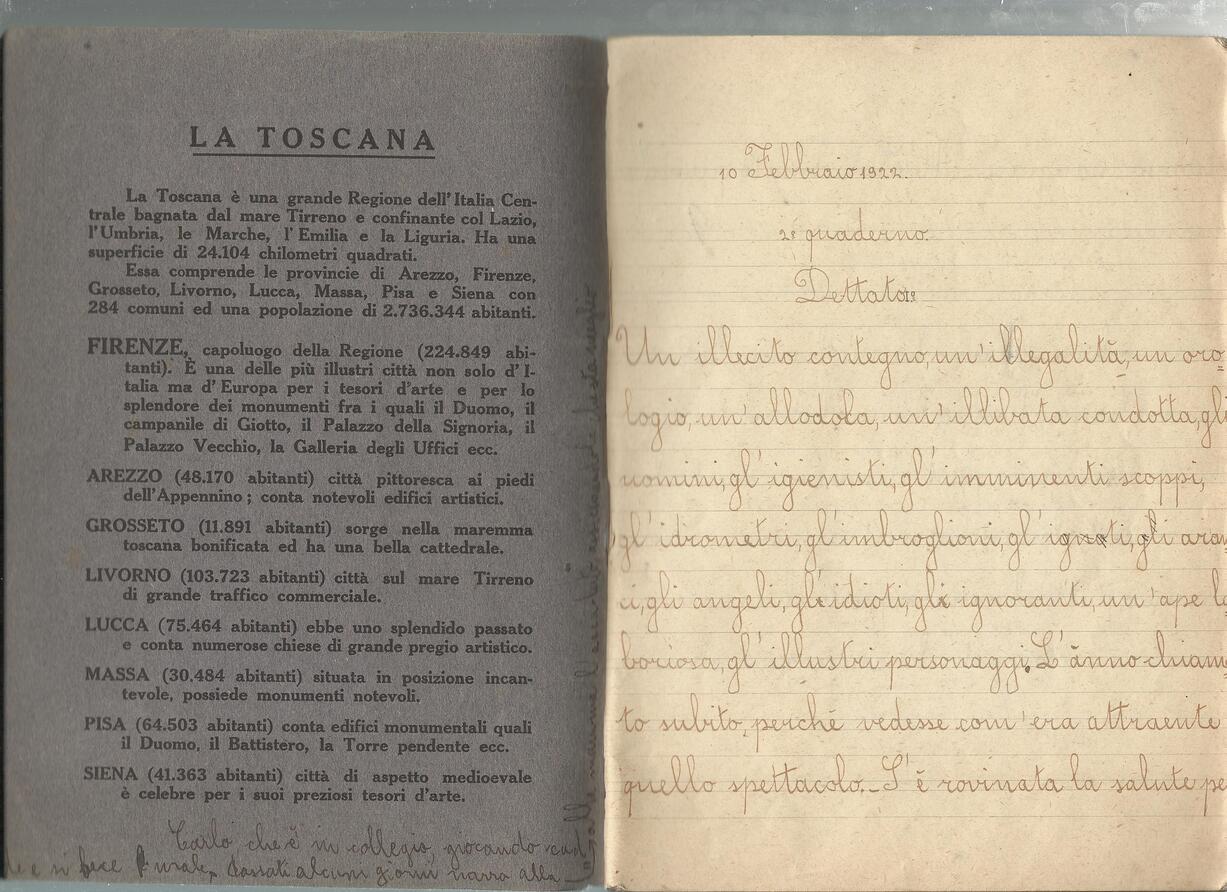 LA TOSCANA
La Toscana è una grande Regione dell'Italia Cen-
trale bagnata dal mare Tirreno e confinante col Lazio,
l'Umbria, le Marche, l'Emilia e la Liguria. Ha una
superficie di 24.104 chilometri quadrati.
Essa comprende le provincie di Arezzo, Firenze,
Grosseto, Livorno, Lucca, Massa, Pisa e Siena con
284 comuni ed una popolazione di 2.736.344 abitanti.
FIRENZE, capoluogo della Regione (224.849 abi-
tanti). È una delle più illustri città non solo d'I-
talia ma d'Europa per i tesori d'arte e per lo
splendore dei monumenti fra i quali il Duomo, il
campanile di Giotto, il Palazzo della Signoria, il
Palazzo Vecchio, la Galleria degli Uffici ecc.
AREZZO (48.170 abitanti) città pittoresca ai piedi
dell'Appennino; conta notevoli edifici artistici.
GROSSETO (11.891 abitanti) sorge nella maremma
toscana bonificata ed ha una bella cattedrale.
LIVORNO (103.723 abitanti) città sul mare Tirreno
di grande traffico commerciale.
LUCCA (75.464 abitanti) ebbe uno splendido passato
e conta numerose chiese di grande pregio artistico.
MASSA (30.484 abitanti) situata in posizione incan-
tevole, possiede monumenti notevoli.
PISA (64.503 abitanti) conta edifici monumentali quali
il Duomo, il Battistero, la Torre pendente ecc.
SIENA (41.363 abitanti) città di aspetto medioevale
è celebre per i suoi preziosi tesori d'arte.
Carlo che è in collegio, giocando cad
de e si fece male. Passati alcuni giorni narra alla
10 Febbraio 1922.
2º quaderno.
Dettato 1º
Un illecito contegno, un'illegalità, un oro
logio, un'allodola, un'illibata condotta, gli
uomini, gl'igienisti, gl'imminenti scoppi,
gl'idrometri, gl'imbroglioni, gl'ignoti, gli aran
ci, gli angeli, gli idioti, gli ignoranti, un'ape la
boriosa, gl'illustri personaggi. L'ànno chiama
to subito, perché vedesse com'era attraente
quello spettacolo. S'è rovinata la salute pe